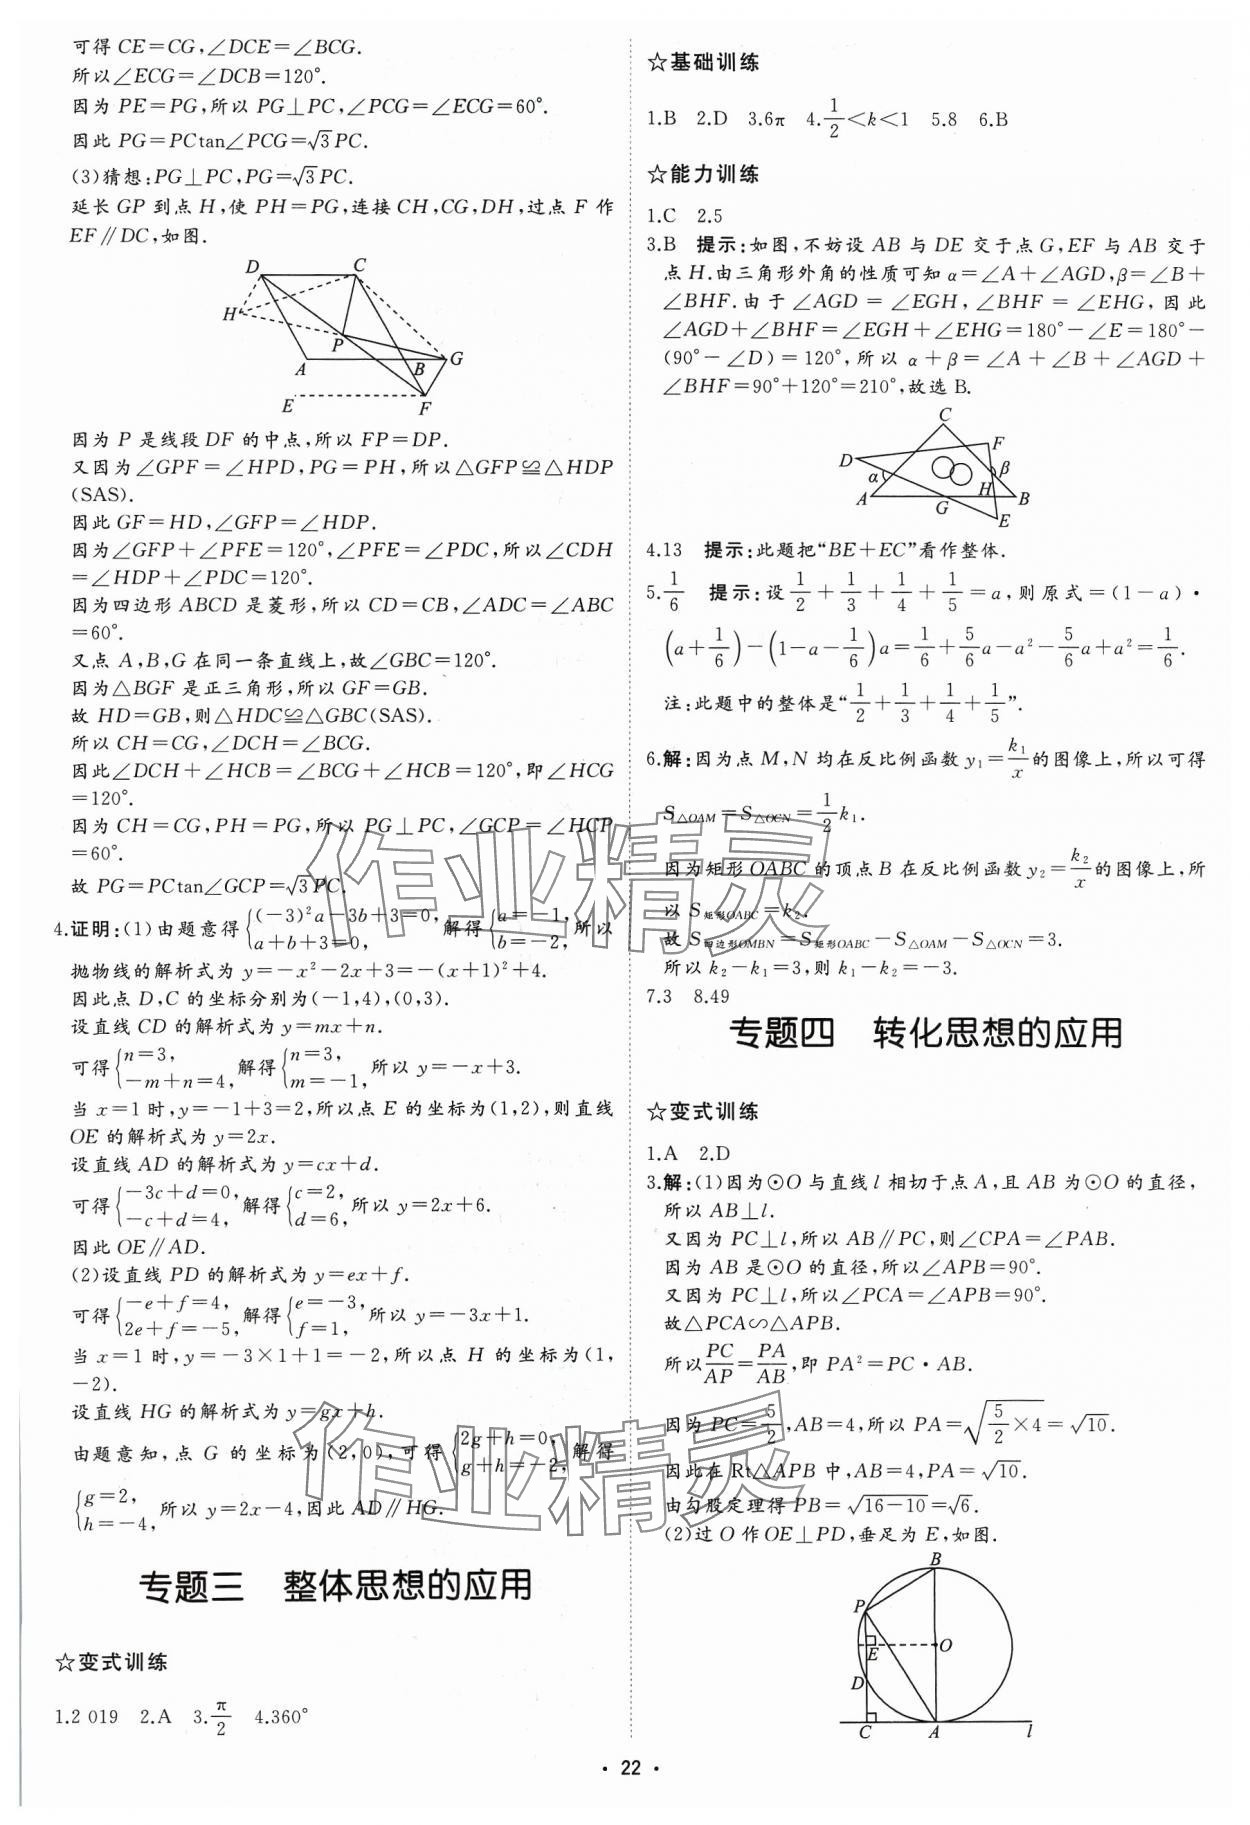 可得 CE=CG,∠DCE=∠BCG.
所以∠ECG=∠DCB=120°.
因为 PE=PG,所以 PG⊥PC,∠PCG=∠ECG=60°.
因此 PG=PCtan∠PCG=√3PC.
(3)猜想:PG⊥PC,PG=√3PC.
延长 GP 到点 H,使 PH=PG,连接 CH,CG,DH,过点 F 作
EF∥DC,如图.
D C
H
P
G
A B
E F
因为 P 是线段 DF 的中点,所以 FP=DP.
又因为∠GPF=∠HPD,PG=PH,所以△GFP≌△HDP
(SAS).
因此 GF=HD,∠GFP=∠HDP.
因为∠GFP+∠PFE=120°,∠PFE=∠PDC,所以∠CDH
=∠HDP+∠PDC=120°.
因为四边形 ABCD 是菱形,所以 CD=CB,∠ADC=∠ABC
=60°.
又点 A,B,G 在同一条直线上,故∠GBC=120°.
因为△BGF 是正三角形,所以 GF=GB.
故 HD=GB,则△HDC≌△GBC(SAS).
所以 CH=CG,∠DCH=∠BCG.
因此∠DCH+∠HCB=∠BCG+∠HCB=120°,即∠HCG
=120°.
因为 CH=CG,PH=PG,所以 PG⊥PC,∠GCP=∠HCP
=60°.
故 PG=PCtan∠GCP=√3PC.
4.证明:(1)由题意得{(-3)²a-3b+3=0, a+b+3=0, 解得{a=-1, b=-2, 所以
抛物线的解析式为 y=-x²-2x+3=-(x+1)²+4.
因此点 D,C 的坐标分别为(-1,4),(0,3).
设直线 CD 的解析式为 y=mx+n.
可得{n=3, -m+n=4, 解得{n=3, m=-1, 所以 y=-x+3.
当 x=1 时,y=-1+3=2,所以点 E 的坐标为(1,2),则直线
OE 的解析式为 y=2x.
设直线 AD 的解析式为 y=cx+d.
可得{-3c+d=0, -c+d=4, 解得{c=2, d=6, 所以 y=2x+6.
因此 OE∥AD.
(2)设直线 PD 的解析式为 y=ex+f.
可得{-e+f=4, 2e+f=-5, 解得{e=-3, f=1, 所以 y=-3x+1.
当 x=1 时,y=-3×1+1=-2,所以点 H 的坐标为(1,
-2).
设直线 HG 的解析式为 y=gx+h.
由题意知,点 G 的坐标为(2,0),可得{2g+h=0, g+h=-2, 解得
{g=2, h=-4, 所以 y=2x-4,因此 AD∥HG.
专题三 整体思想的应用
☆变式训练
1.2 019 2.A 3.π/2 4.360°
☆基础训练
1.B 2.D 3.6π 4.1/2<k<1 5.8 6.B
☆能力训练
1.C 2.5
3.B 提示:如图,不妨设 AB 与 DE 交于点 G,EF 与 AB 交于
点 H.由三角形外角的性质可知 α=∠A+∠AGD,β=∠B+
∠BHF.由于∠AGD=∠EGH,∠BHF=∠EHG,因此
∠AGD+∠BHF=∠EGH+∠EHG=180°-∠E=180°-
(90°-∠D)=120°,所以 α+β=∠A+∠B+∠AGD+
∠BHF=90°+120°=210°,故选 B.
C
F
D
α β
H
A G B
E
4.13 提示:此题把“BE+EC”看作整体.
5.1/6 提示:设1/2+1/3+1/4+1/5=a,则原式=(1-a)·
(a+1/6)-(1-a-1/6)a=1/6+5/6a-a²-5/6a+a²=1/6.
注:此题中的整体是“1/2+1/3+1/4+1/5”.
6.解:因为点 M,N 均在反比例函数 y₁=k₁/x的图像上,所以可得
S△OAM=S△OCN=1/2k₁.
因为矩形 OABC 的顶点 B 在反比例函数 y₂=k₂/x的图像上,所
以 S矩形OABC=k₂.
故 S四边形OMBN=S矩形OABC-S△OAM-S△OCN=3.
所以 k₂-k₁=3,则 k₁-k₂=-3.
7.3 8.49
专题四 转化思想的应用
☆变式训练
1.A 2.D
3.解:(1)因为⊙O 与直线 l 相切于点 A,且 AB 为⊙O 的直径,
所以 AB⊥l.
又因为 PC⊥l,所以 AB∥PC,则∠CPA=∠PAB.
因为 AB 是⊙O 的直径,所以∠APB=90°.
又因为 PC⊥l,所以∠PCA=∠APB=90°.
故△PCA∽△APB.
所以PC/AP=PA/AB,即 PA²=PC·AB.
因为 PC=5/2,AB=4,所以 PA=√(5/2×4)=√10.
因此在 Rt△APB 中,AB=4,PA=√10.
由勾股定理得 PB=√(16-10)=√6.
(2)过 O 作 OE⊥PD,垂足为 E,如图.
B
P
E O
D
C A l
作业精灵
作业精灵
·22·